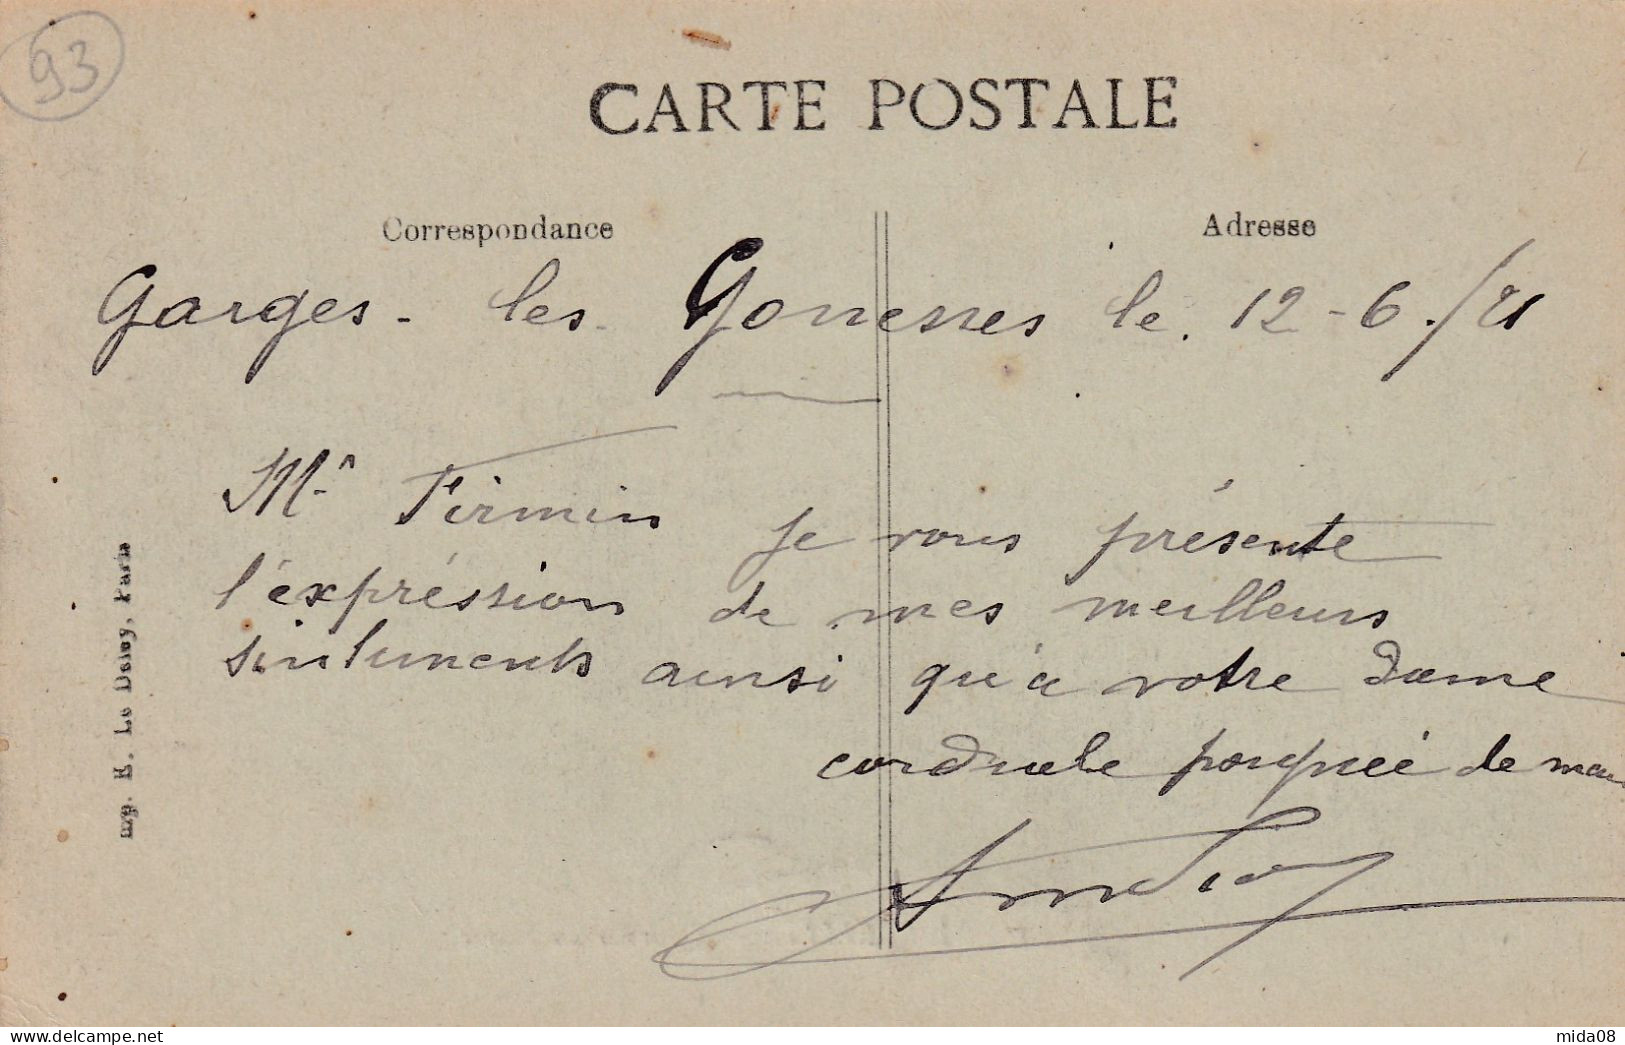 93
CARTE POSTALE
Correspondance
Adresse
Garges - les - Gonesses le. 12 - 6 . / 21
Mr Firmin je vous présente
l'expréssion de mes meilleurs
sintuments ainsi qu'à votre Dame
cordiale poignée de main
Imp. E. Le Deley, Paris
mida08